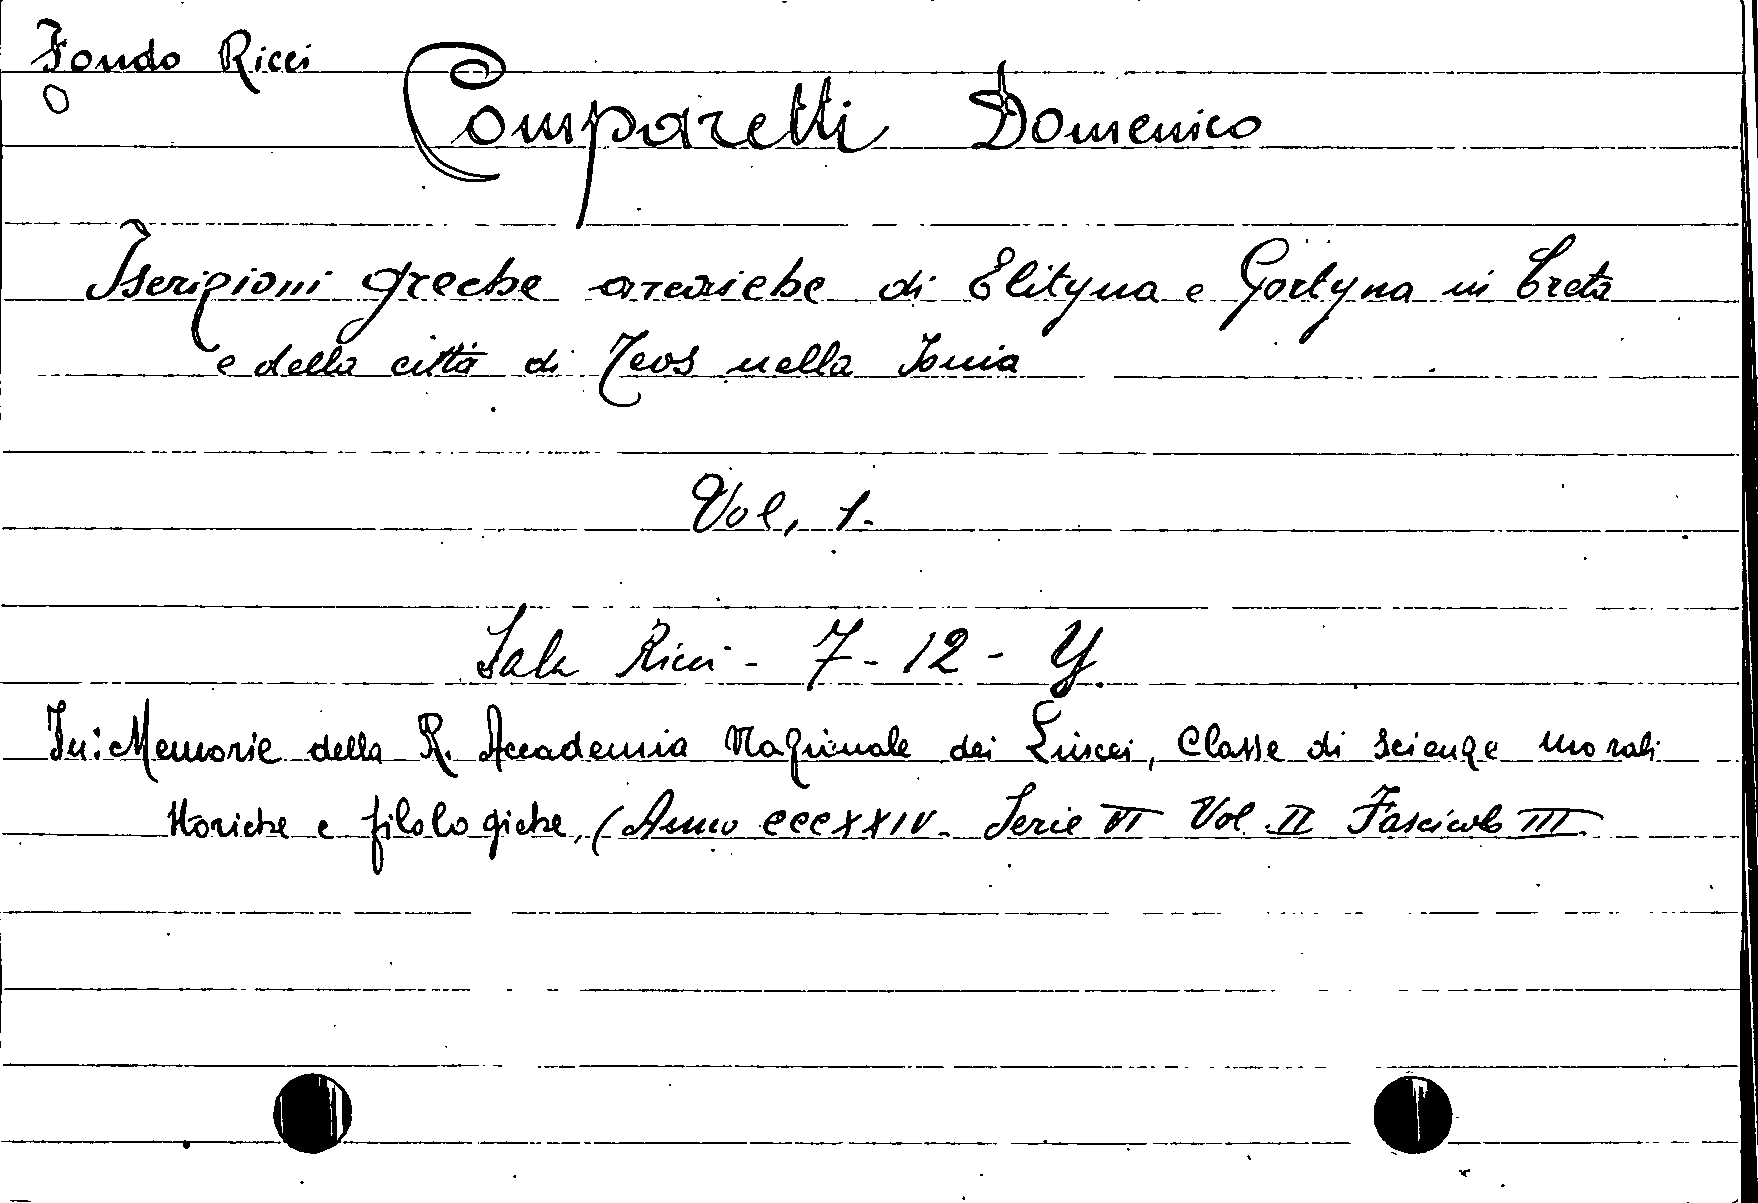 Fondo Ricci
O
Comparetti Domenico
Iscrizioni greche arcaiche di Elityna e Gortyna in Creta
e della città di Teos nella Ionia
Vol, 1.
Sala Ricci - 7 - 12 - Y.
In: Memorie della R. Accademia Nazionale dei Lincei, Classe di scienze morali
storiche e filologiche, (Anno CCCXXIV. Serie VI Vol II Fascicolo III.